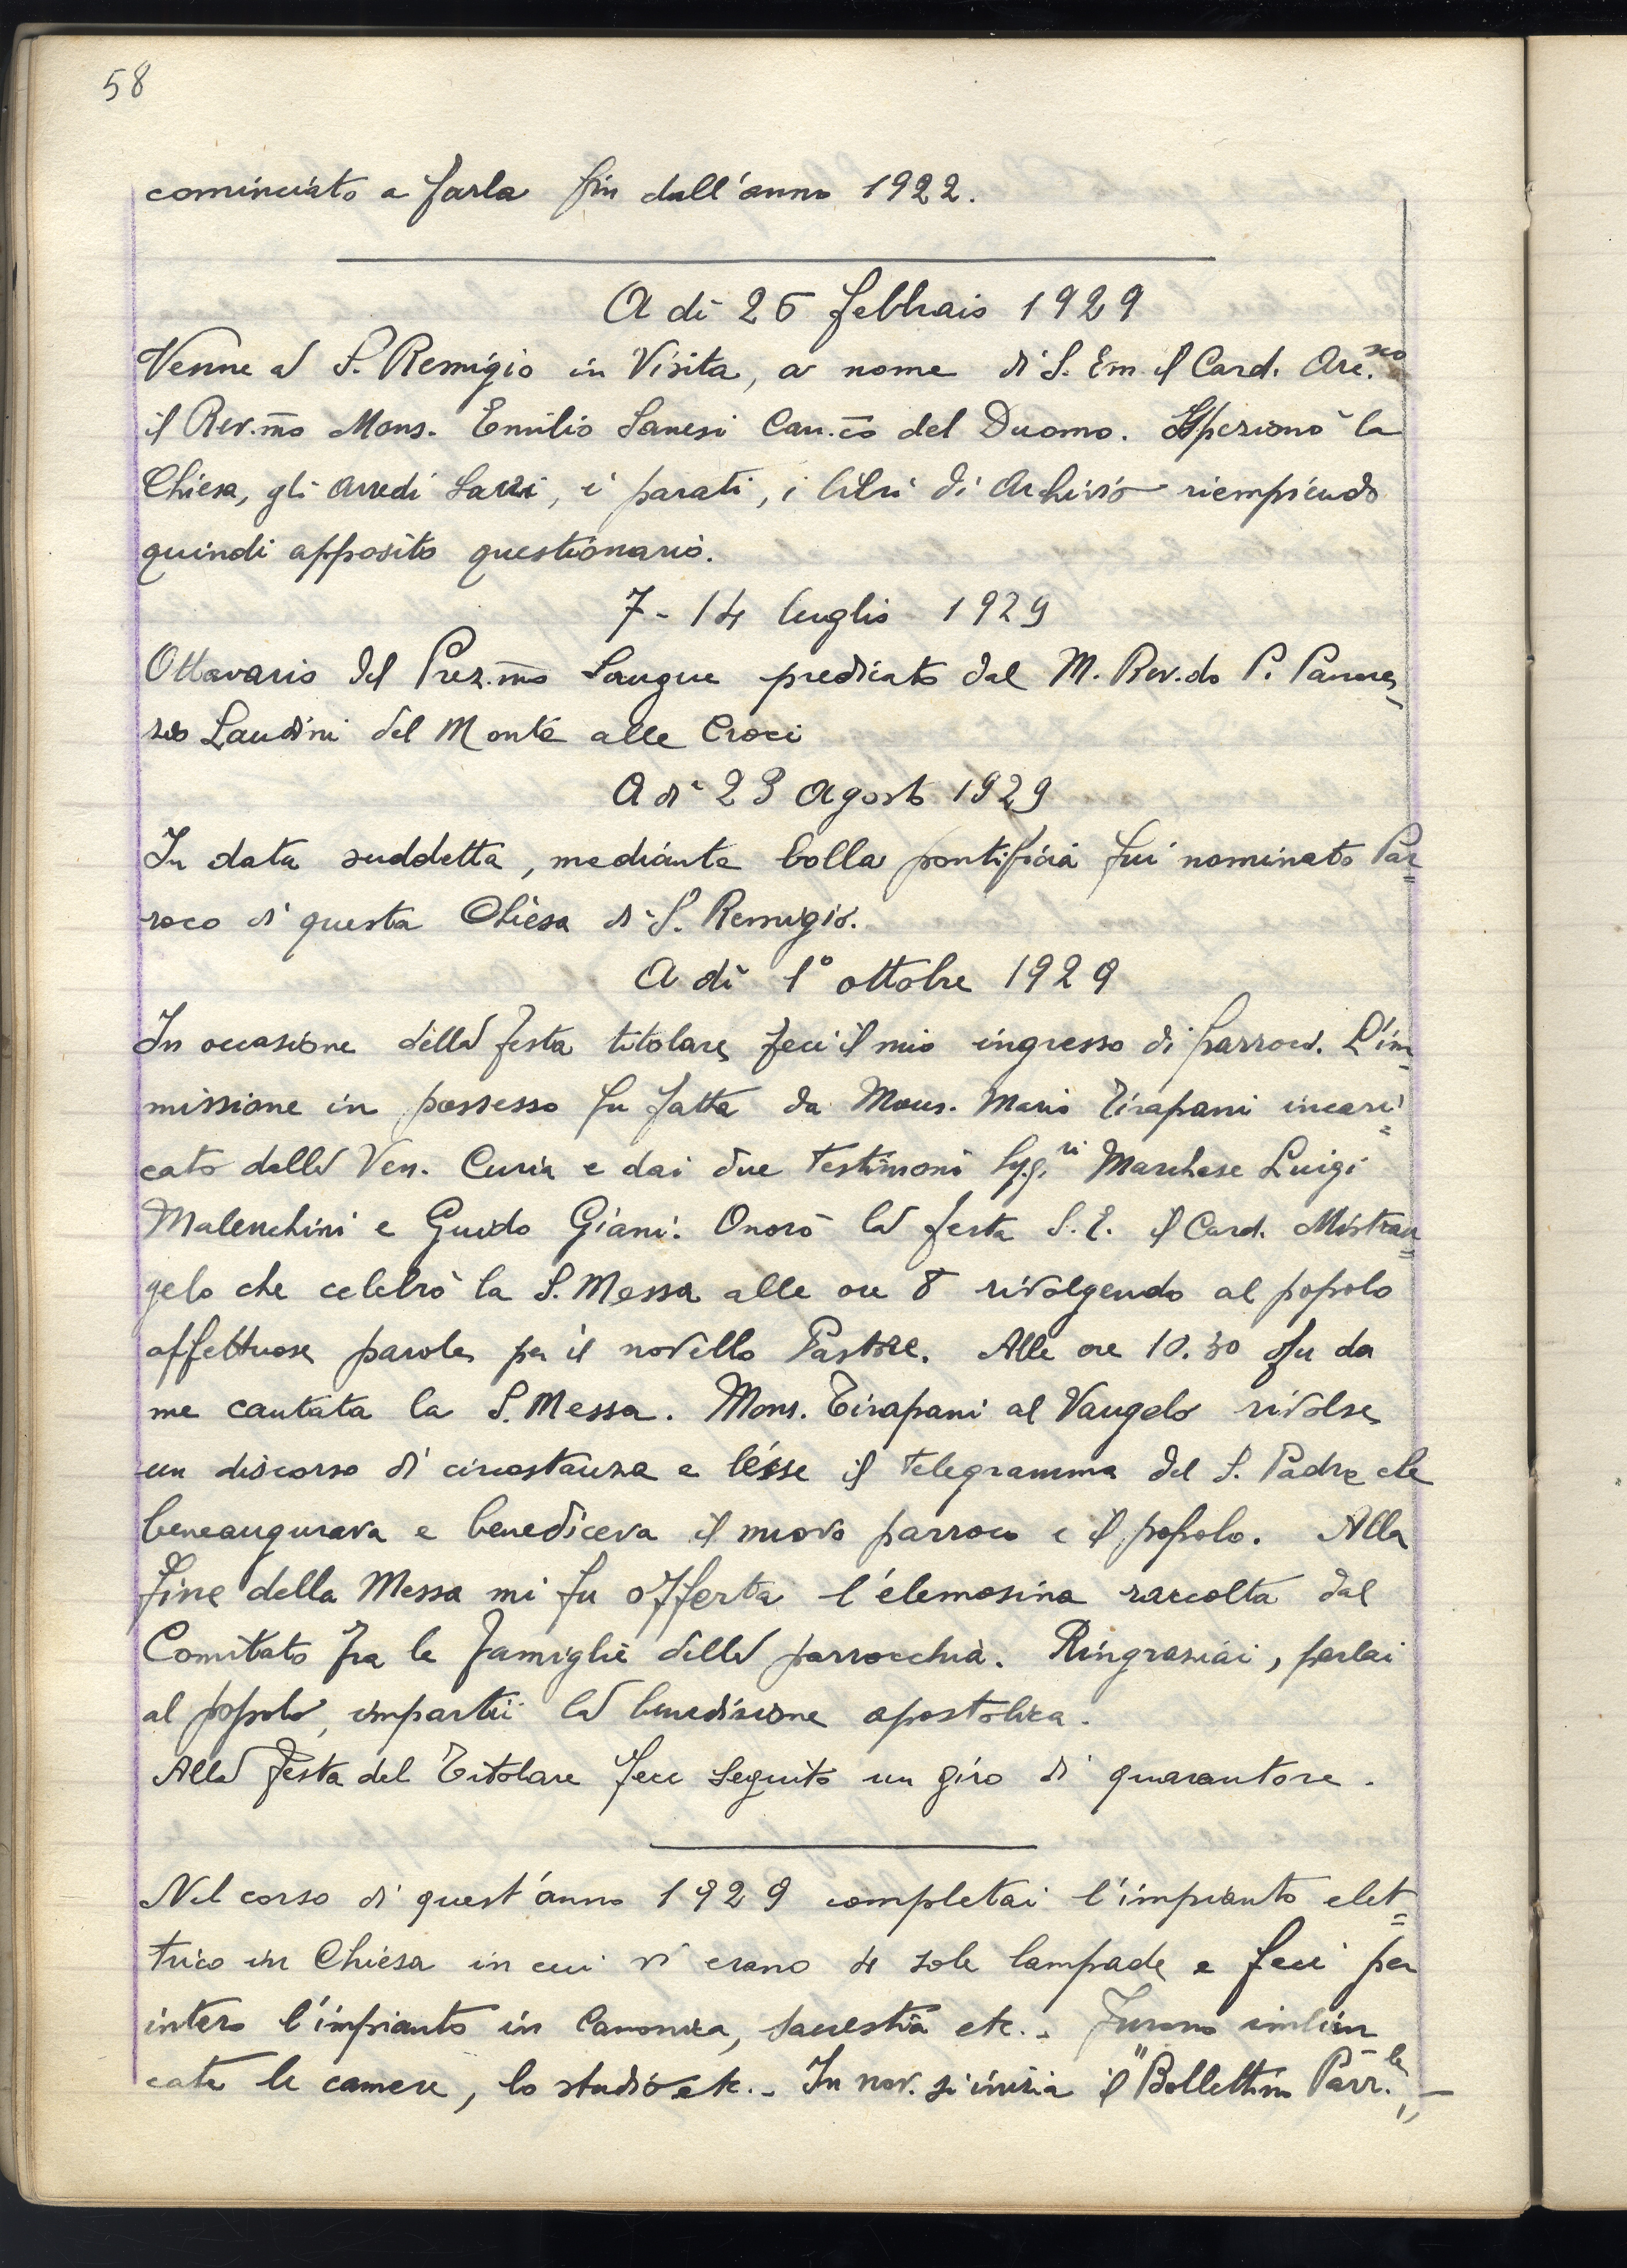 58
cominciato a farla fin dall'anno 1922.
A dì 26 febbraio 1929
Venne a S. Remigio in Visita, a nome di S. Em. il Card. Arc.sco
il Rev.mo Mons. Emilio Sanesi Can.co del Duomo. Ispezionò la
Chiesa, gli arredi sacri, i parati, i libri di Archivio riempiendo
quindi apposito questionario.
7 - 14 luglio 1929
Ottavario del Prez.mo Sangue predicato dal M. Rev.do P.
Landini del Monte alle Croci
A dì 23 Agosto 1929
In data suddetta, mediante bolla pontificia fui nominato Par=
roco di questa Chiesa di S. Remigio.
A dì 1° ottobre 1929
In occasione della festa titolare feci il mio ingresso di parroco. L'im=
missione in possesso fu fatta da Mons. Mario Tirapani incari=
cato dalla Ven. Curia e dai due testimoni Sigg.ri Marchese Luigi
Malenchini e Guido Giani. Onorò la festa S. E. il Card. Mistran=
gelo che celebrò la S. Messa alle ore 8 rivolgendo al popolo
affettuose parole per il novello Pastore. Alle ore 10.30 fu da
me cantata la S. Messa. Mons. Tirapani al Vangelo rivolse
un discorso di circostanza e lesse il telegramma del S. Padre che
beneaugurava e benediceva il nuovo parroco e il popolo. Alla
fine della Messa mi fu offerta l'elemosina raccolta dal
Comitato fra le famiglie della parrocchia. Ringraziai, parlai
al popolo, impartii la benedizione apostolica.
Alla festa del Titolare fece seguito un giro di quarantore.
Nel corso di quest'anno 1929 completai l'impianto elet=
trico in Chiesa in cui vi erano 4 sole lampade e feci per
intero l'impianto in Canonica, sacrestia etc.. Furono imbian
cate le camere, lo studio etc.. In nov. si inizia il "Bollettino Parr.le" -